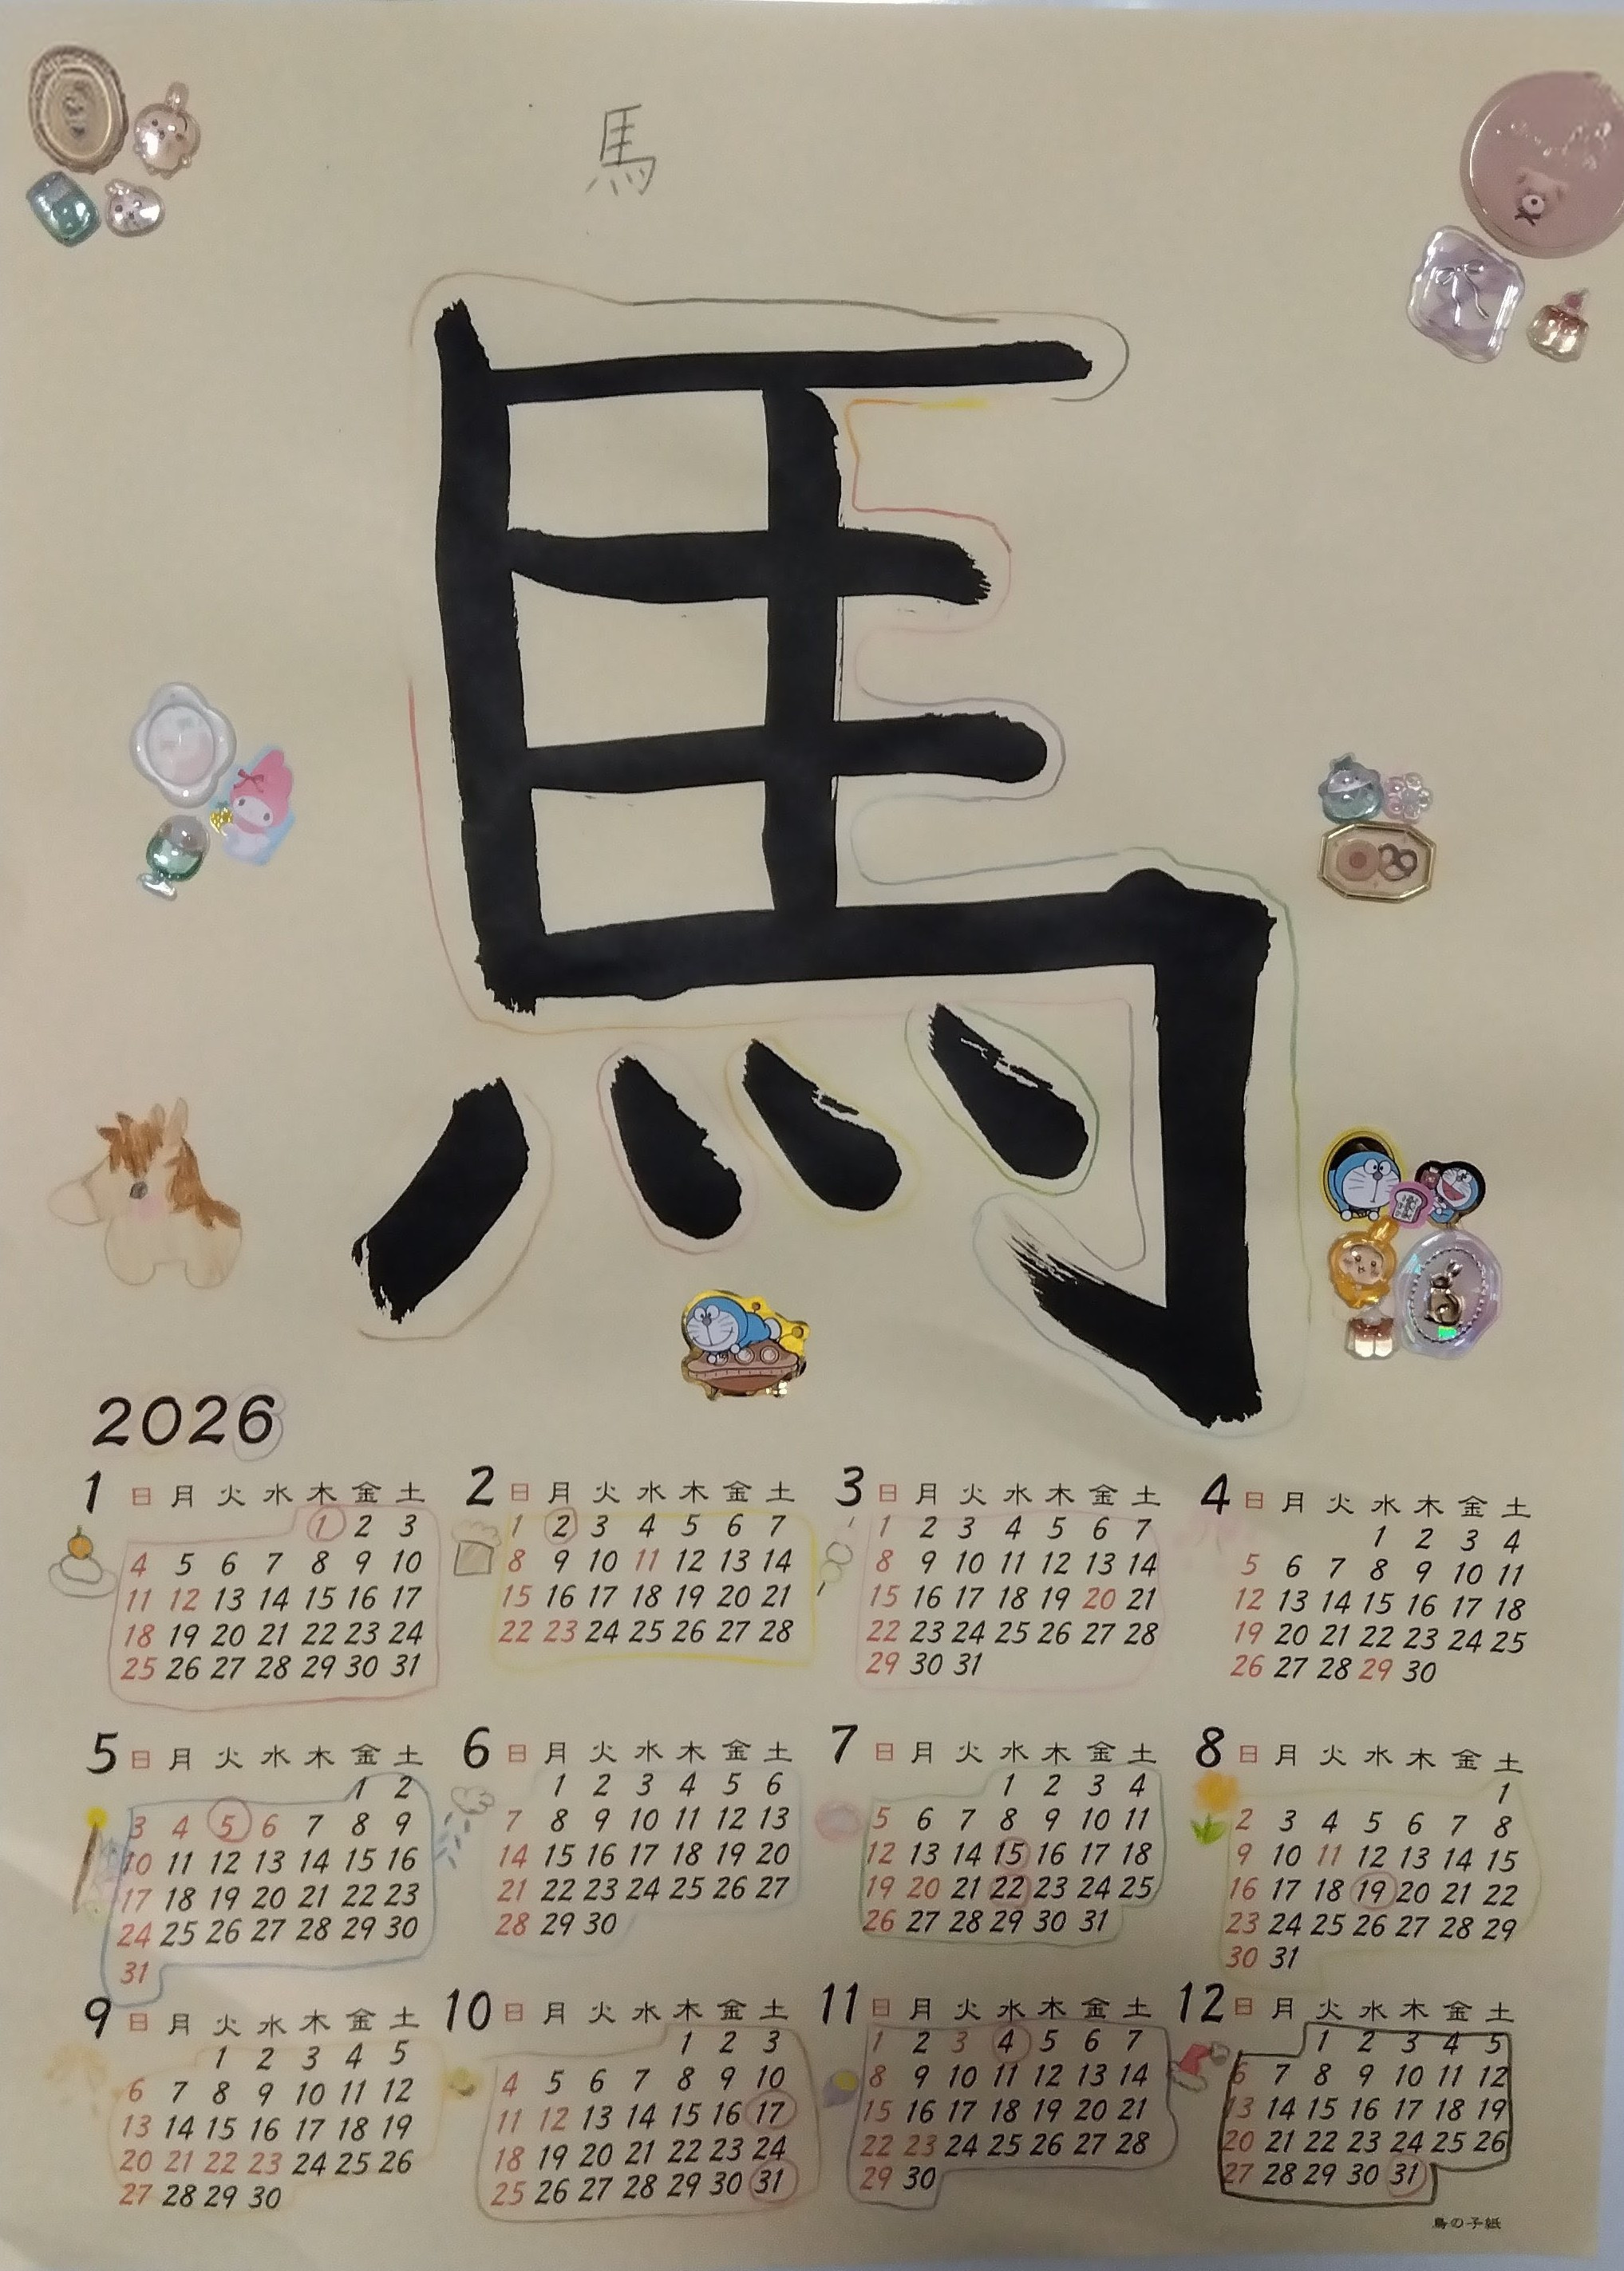 馬
馬
2026
1 日 月 火 水 木 金 土
1 2 3
4 5 6 7 8 9 10
11 12 13 14 15 16 17
18 19 20 21 22 23 24
25 26 27 28 29 30 31
2 日 月 火 水 木 金 土
1 2 3 4 5 6 7
8 9 10 11 12 13 14
15 16 17 18 19 20 21
22 23 24 25 26 27 28
3 日 月 火 水 木 金 土
1 2 3 4 5 6 7
8 9 10 11 12 13 14
15 16 17 18 19 20 21
22 23 24 25 26 27 28
29 30 31
4 日 月 火 水 木 金 土
1 2 3 4
5 6 7 8 9 10 11
12 13 14 15 16 17 18
19 20 21 22 23 24 25
26 27 28 29 30
5 日 月 火 水 木 金 土
1 2
3 4 5 6 7 8 9
10 11 12 13 14 15 16
17 18 19 20 21 22 23
24 25 26 27 28 29 30
31
6 日 月 火 水 木 金 土
1 2 3 4 5 6
7 8 9 10 11 12 13
14 15 16 17 18 19 20
21 22 23 24 25 26 27
28 29 30
7 日 月 火 水 木 金 土
1 2 3 4
5 6 7 8 9 10 11
12 13 14 15 16 17 18
19 20 21 22 23 24 25
26 27 28 29 30 31
8 日 月 火 水 木 金 土
1
2 3 4 5 6 7 8
9 10 11 12 13 14 15
16 17 18 19 20 21 22
23 24 25 26 27 28 29
30 31
9 日 月 火 水 木 金 土
1 2 3 4 5
6 7 8 9 10 11 12
13 14 15 16 17 18 19
20 21 22 23 24 25 26
27 28 29 30
10 日 月 火 水 木 金 土
1 2 3
4 5 6 7 8 9 10
11 12 13 14 15 16 17
18 19 20 21 22 23 24
25 26 27 28 29 30 31
11 日 月 火 水 木 金 土
1 2 3 4 5 6 7
8 9 10 11 12 13 14
15 16 17 18 19 20 21
22 23 24 25 26 27 28
29 30
12 日 月 火 水 木 金 土
1 2 3 4 5
6 7 8 9 10 11 12
13 14 15 16 17 18 19
20 21 22 23 24 25 26
27 28 29 30 31
鳥の子紙